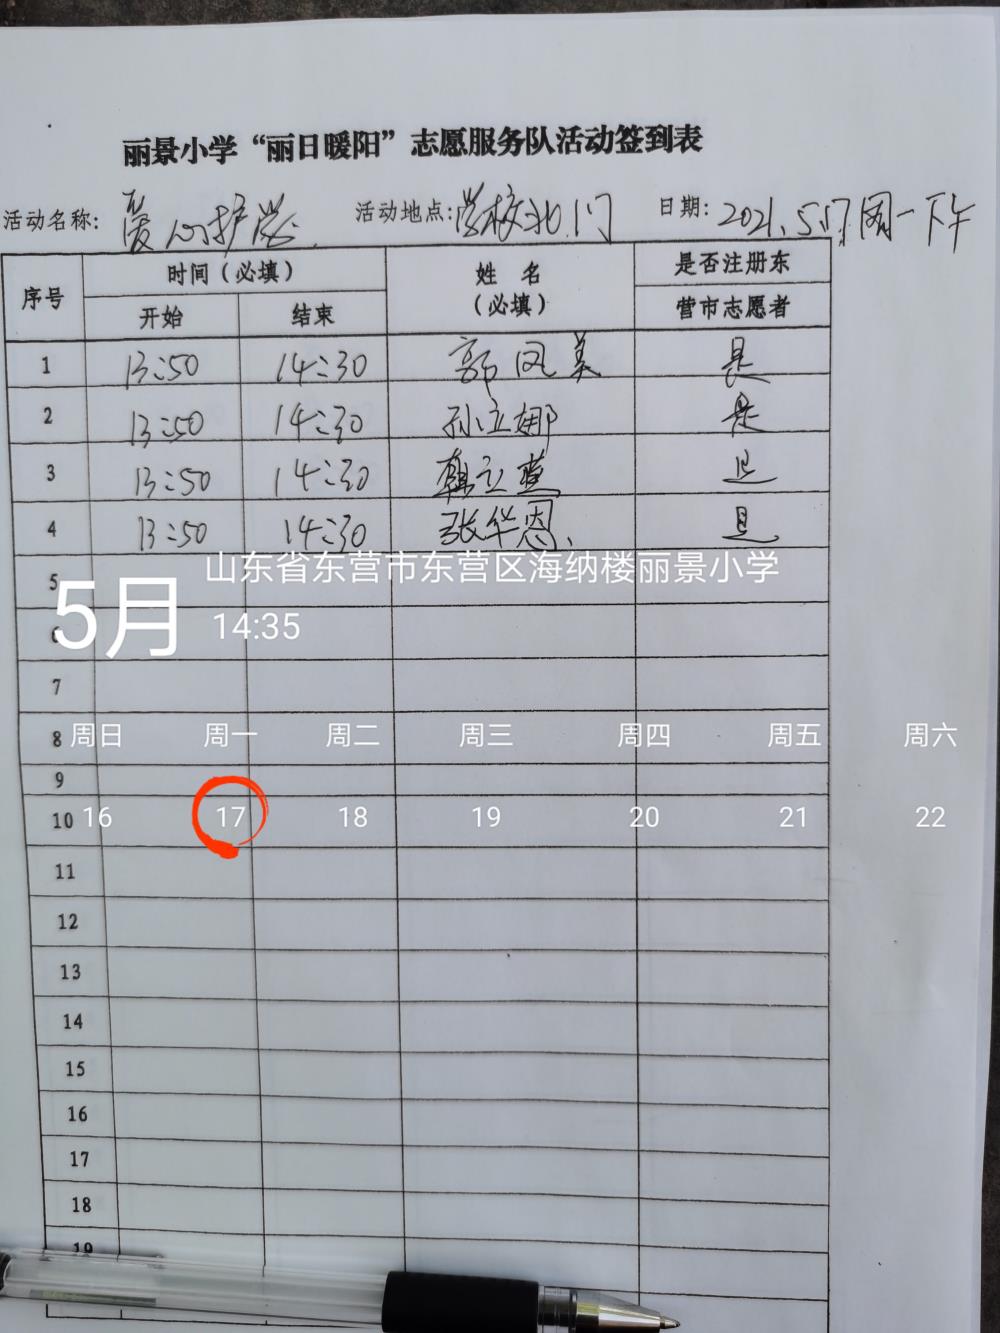 丽景小学“丽日暖阳”志愿服务队活动签到表
活动名称: 爱心护学 活动地点: 学校北门 日期: 2021.5.17周一下午
序号 时间（必填） 姓名（必填） 是否注册东营市志愿者
开始 结束
1 13:50 14:30 郭凤美 是
2 13:50 14:30 孙立娜 是
3 13:50 14:30 韩立 是
4 13:50 14:30 张华恩 是
山东省东营市东营区海纳楼丽景小学
5
5月 14:35
6
7
8
周日 周一 周二 周三 周四 周五 周六
9
10
16 17 18 19 20 21 22
11
12
13
14
15
16
17
18
19